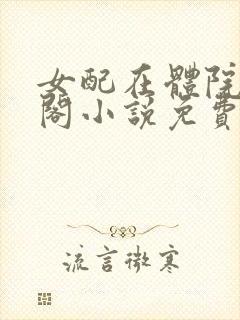 女配在體院
閣小說免費
流言微寒